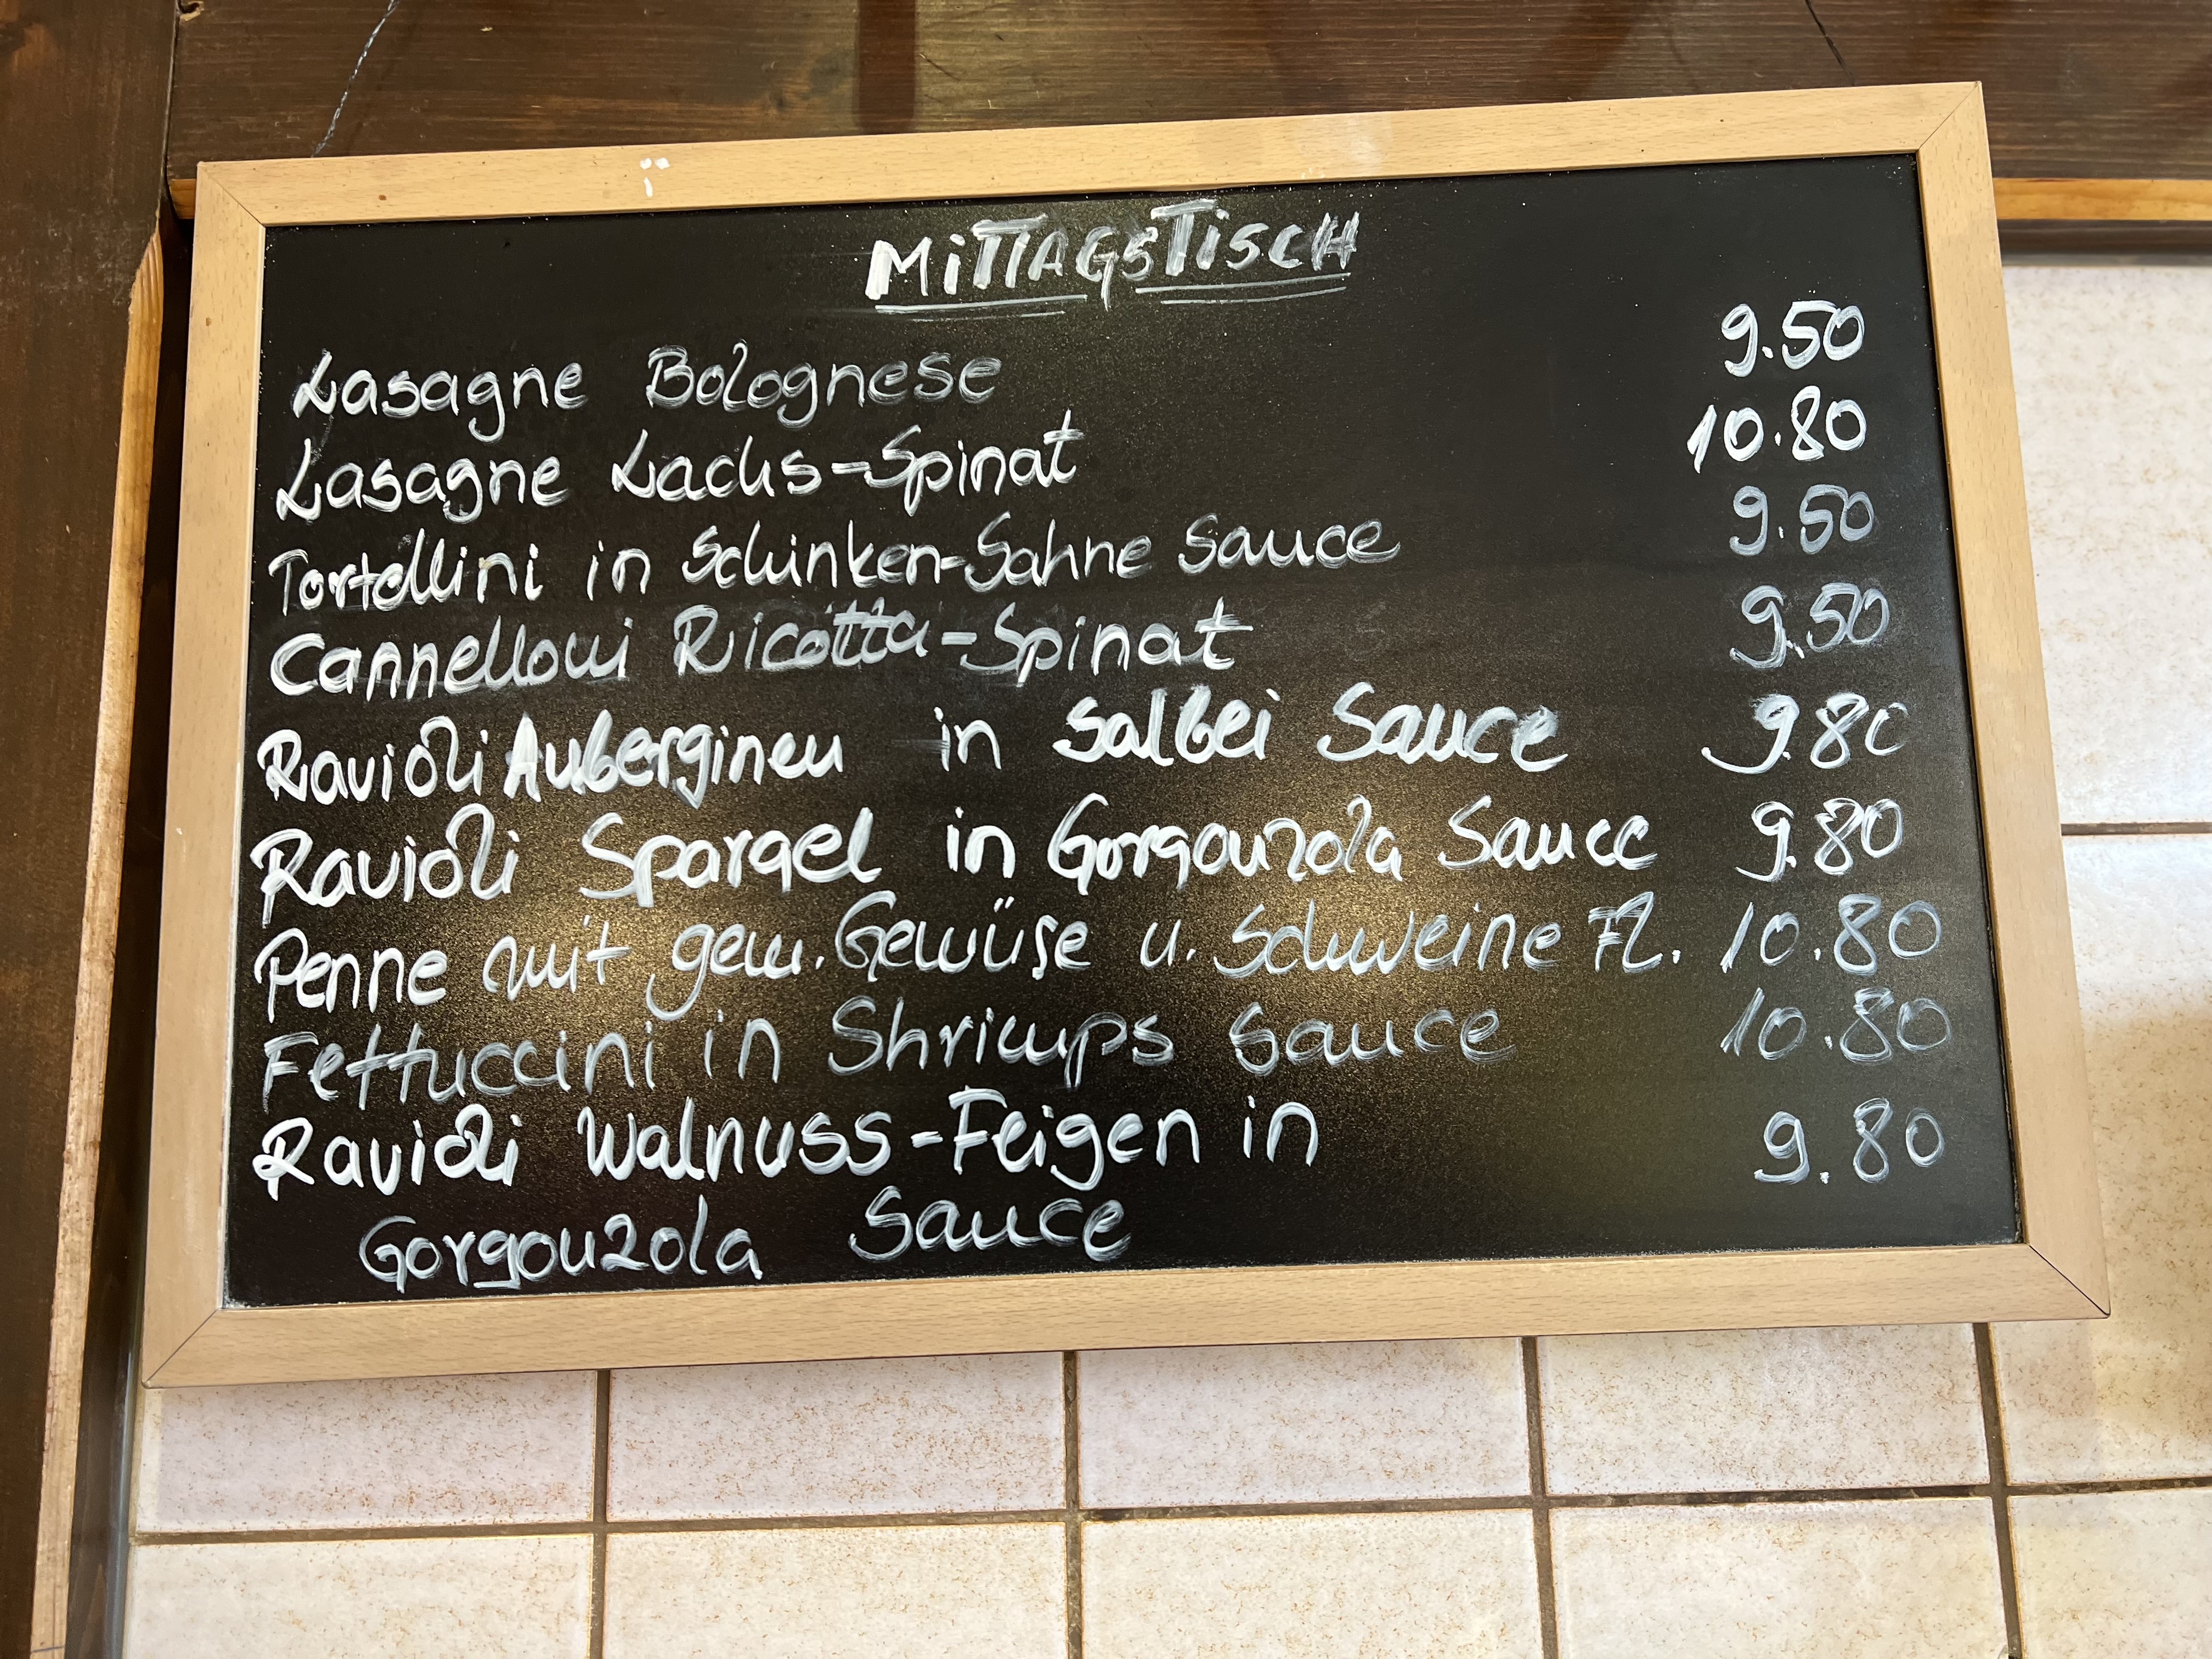 MiTTAGSTiSCH
Lasagne Bolognese 9.50
Lasagne Lachs-Spinat 10.80
Tortellini in Schinken-Sahne Sauce 9.50
Cannelloni Ricotta-Spinat 9.50
Ravioli Auberginen in Salbei Sauce 9.80
Ravioli Spargel in Gorgonzola Sauce 9.80
Penne mit gem. Gewüse u. Schweine Fl. 10.80
Fettuccini in Shrimps Sauce 10.80
Ravioli Walnuss-Feigen in 9.80
Gorgonzola Sauce